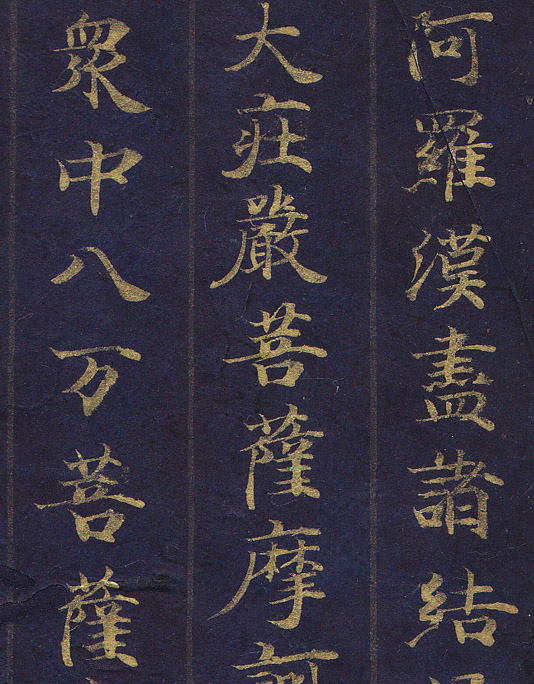 阿羅漢盡諸結
大莊嚴菩薩摩訶
衆中八万菩薩